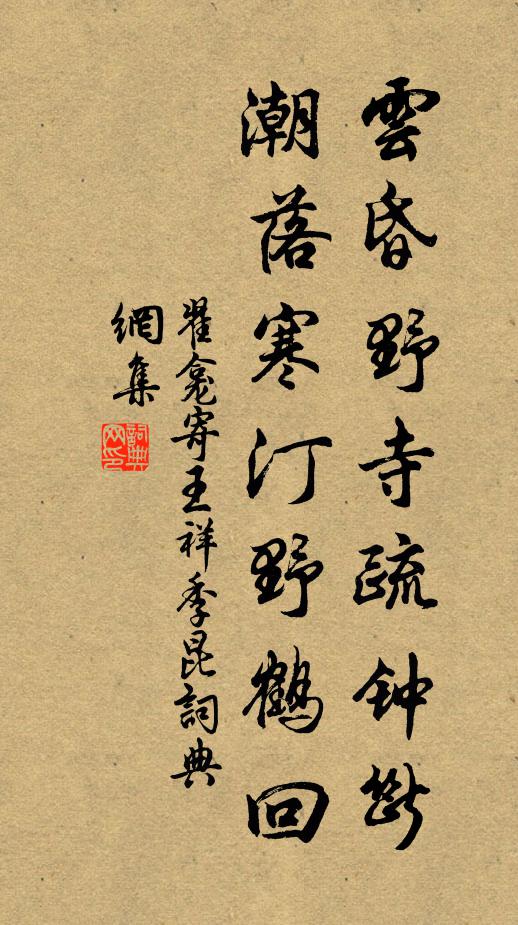 雲昏野寺疏钟断
潮落寒汀野鶴回
翟龛寄王祥季昆詞典
網集
詞典
网印